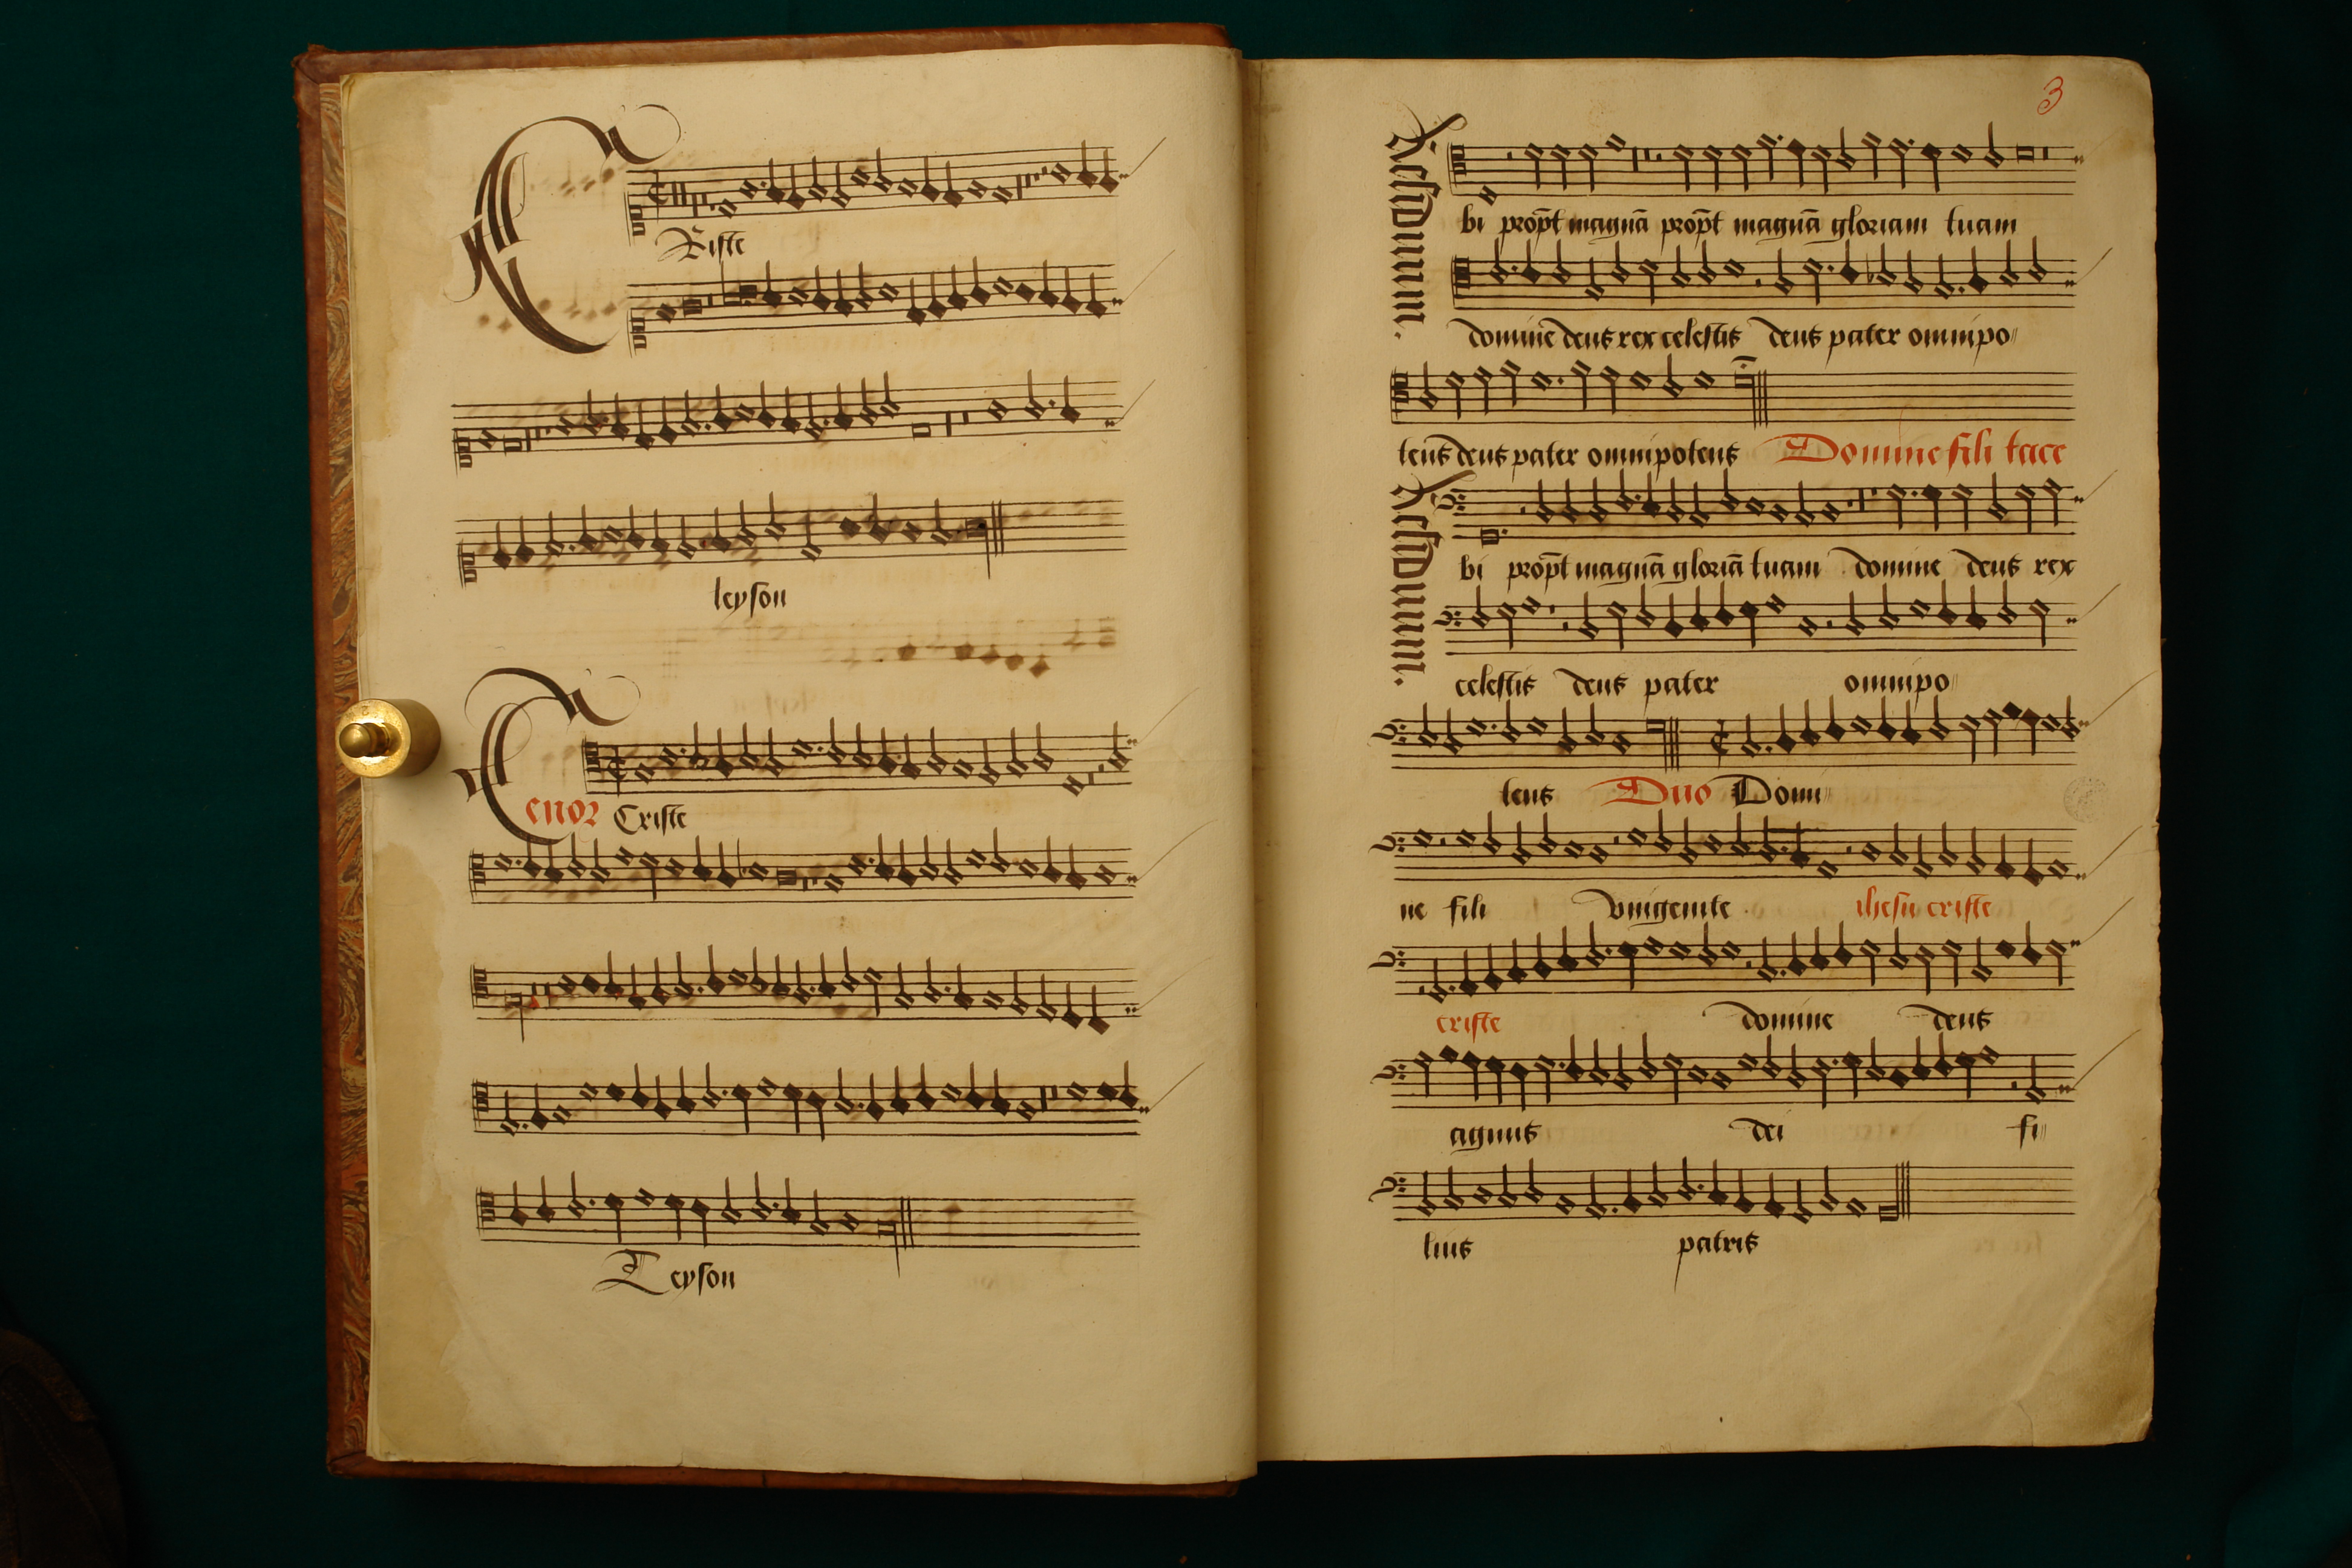 Criste
leyson
Tenor Criste
Leyson
3
Residuum.
bi propt̄ magnā propt̄ magnā gloriam tuam
domine deus rex celestis deus pater omnipo〃
tens deus pater omnipotens Domine fili tace
Residuum.
bi propt̄ magnā gloriā tuam domine deus rex
celestis deus pater omnipo〃
tens Duo Domi〃
ne fili vnigenite ihesu criste
criste domine deus
agnus dei fi〃
lius patris